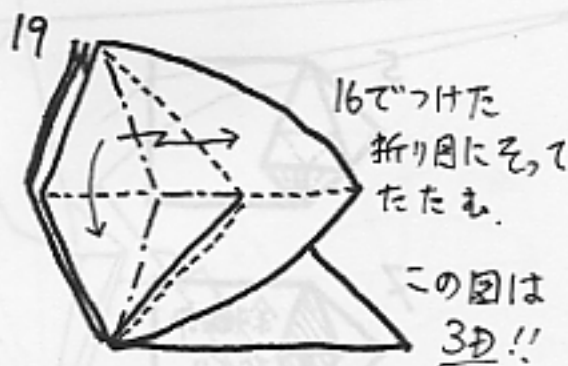 19
16でつけた
折り図にそって
たたむ.
この図は
3D!!